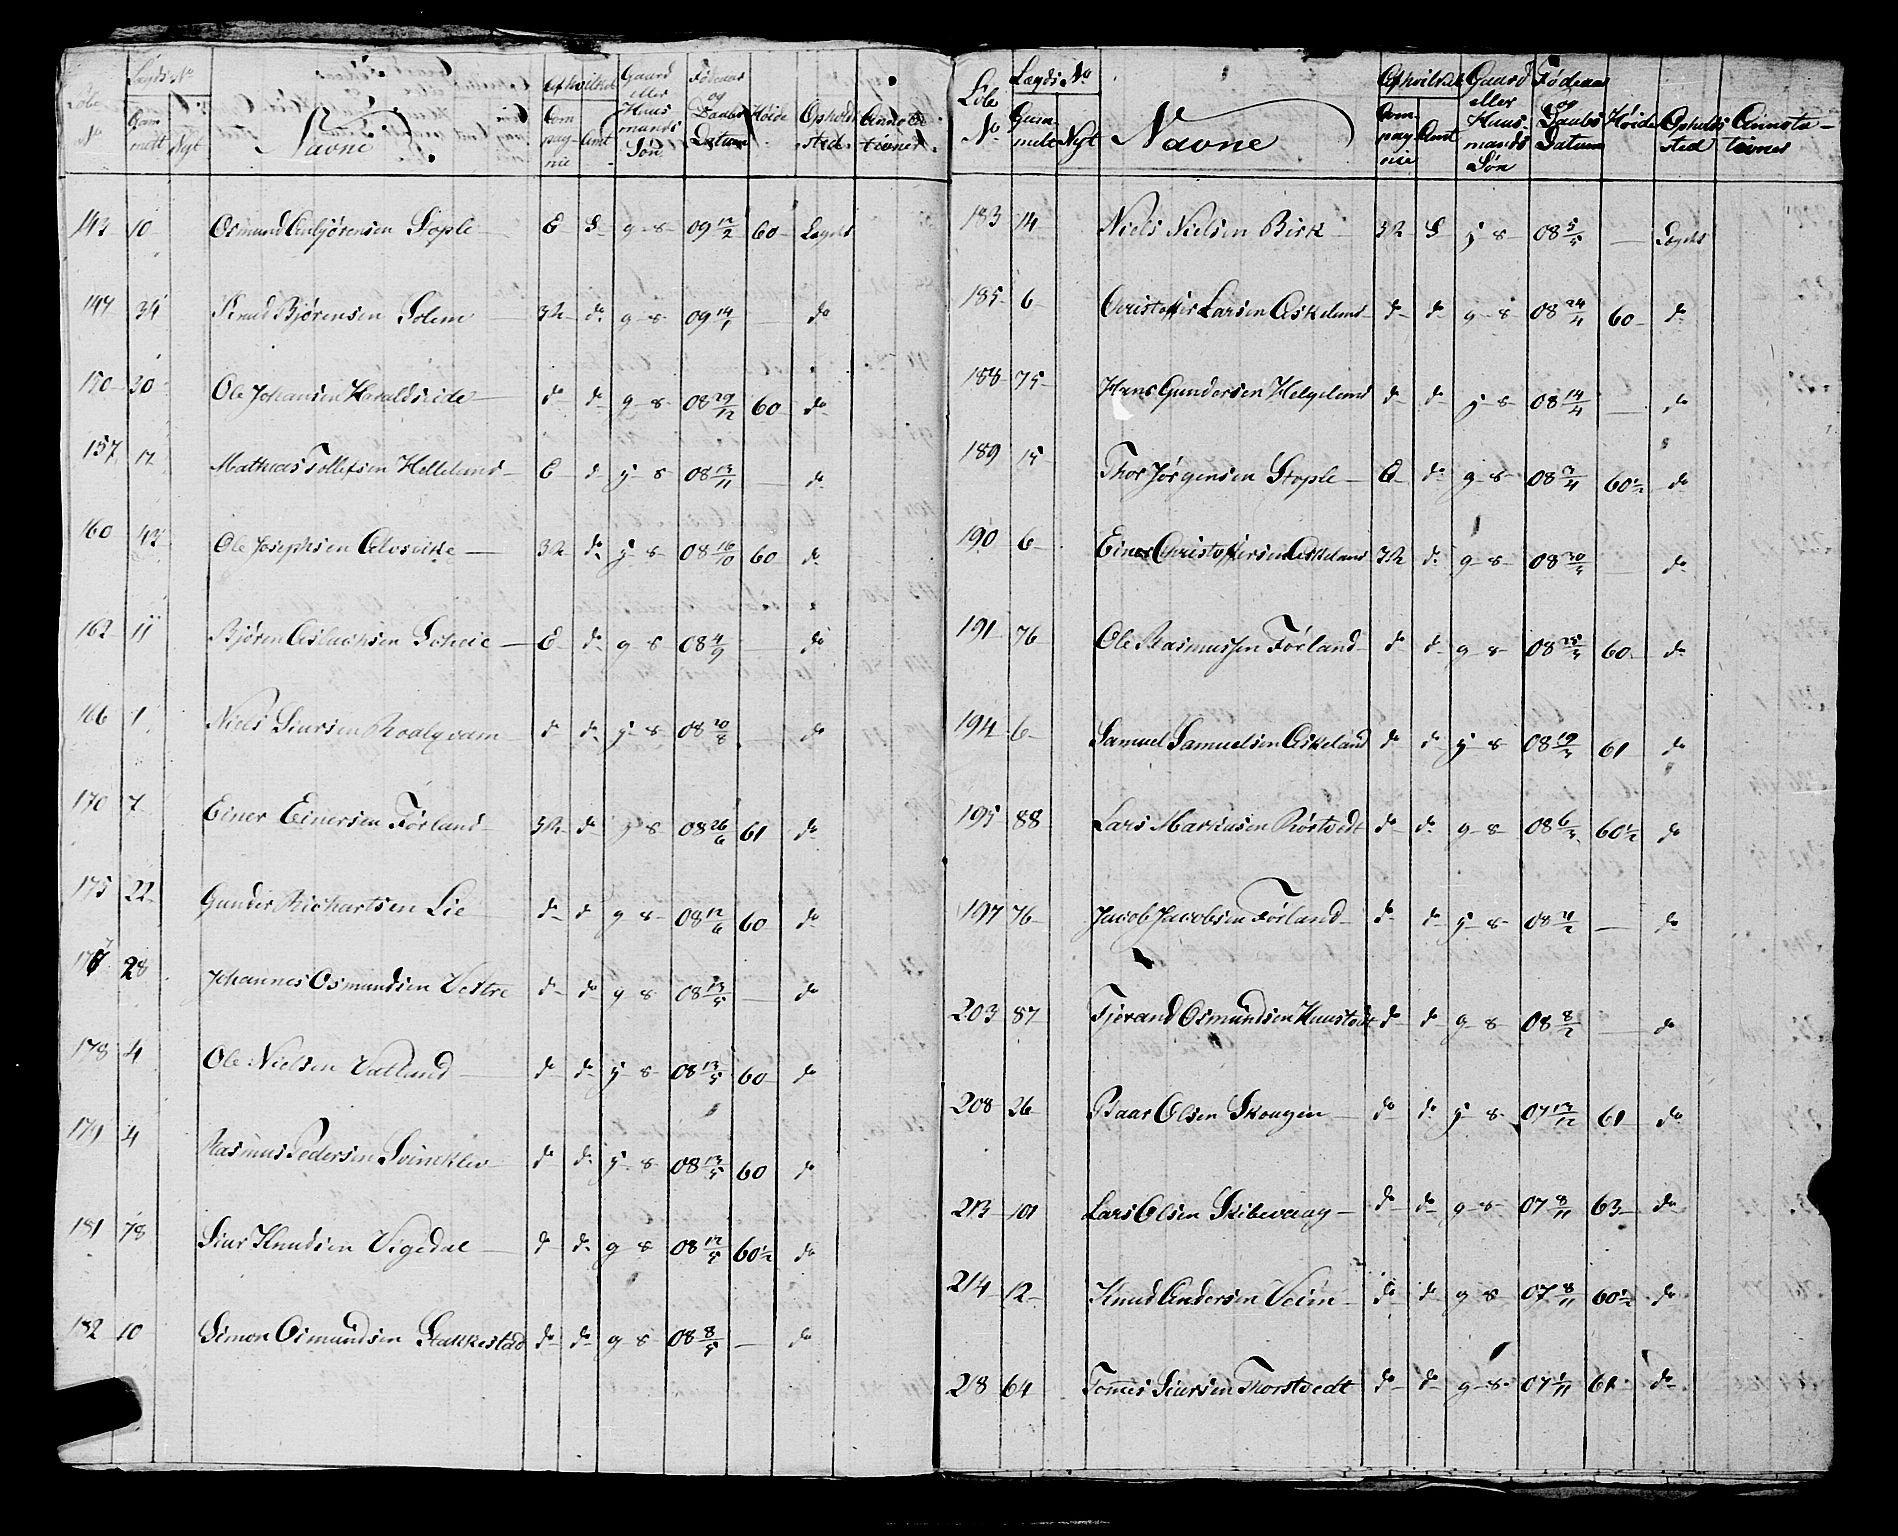 Løbe No | Lægds No Gammelt | Nyt | Navne | Af hvilket Compagnie | Amt | Gaard eller Huusmands Søn | Fødeaar og Daabs Datum | Høide | Opholds sted | Annotationer
143 10 Osmund Asbjørensen Stople E S g s 09 12/2 60 Lægdet
147 34 Knud Bjørensen Solem 3R do g s 09 14/1 — do
150 20 Ole Johansen Haraldseide do do g s 08 29/12 60 do
157 12 Mathias Tollefsen Helleland E do j s 08 13/11 — do
160 42 Ole Josephsen Alvsvike 3R do j s 08 16/10 60 do
162 11 Bjøren Aslachsen Scheie E do g s 08 4/9 — do
166 1 Niels Siursen Roalqvam do do j s 08 20/8 — do
170 7 Einer Einersen Førland 3R do j s 08 26/6 61 do
175 22 Gunder Richartsen Lie do do g s 08 12/6 60 do
177 28 Johannes Osmundsen Vestre do do g s 08 13/5 — do
178 4 Ole Nielsen Vatland do do j s 08 13/5 60 do
179 4 Rasmus Pedersen Svineklev do do j s 08 13/5 60 do
181 78 Siur Knudsen Vigedal do do g s 08 12/5 60½ do
182 10 Simon Osmundsen Stakkestad do do g s 08 8/5 — do
Løbe No | Lægds No Gammelt | Nyt | Navne | Af hvilket Compagnie | Amt | Gaard eller Huusmands Søn | Fødeaar og Daabs Datum | Høide | Opholds sted | Annotationer
183 14 Niels Nielsen Birk 3R S j s 08 5/5 — Lægdet
185 6 Christoffer Larsen Askeland do do g s 08 24/4 60 do
188 75 Hans Gundersen Helgeland do do j s 08 14/4 — do
189 15 Thor Jørgensen Stople E do g s 08 3/4 60½ do
190 6 Einer Christoffersen Askeland 3R do g s 08 30/3 — do
191 76 Ole Rasmussen Førland do do g s 08 25/3 60 do
194 6 Samuel Samuelsen Askeland do do j s 08 19/3 61 do
195 88 Lars Markusen Rørtvedt do do g s 08 6/3 60½ do
197 76 Jacob Jacobsen Førland do do j s 08 /2 — do
203 87 Tjerand Osmundsen Hustvedt do do g s 08 8/2 — do
208 26 Baar Olsen Skougen do do j s 07 13/12 61 do
213 101 Lars Olsen Skibevaag do do g s 07 8/11 63 do
214 12 Knud Andersen Veim do do g s 07 8/11 60½ do
218 64 Tommes Siursen Thorstvedt do do g s 07 1/11 61 do